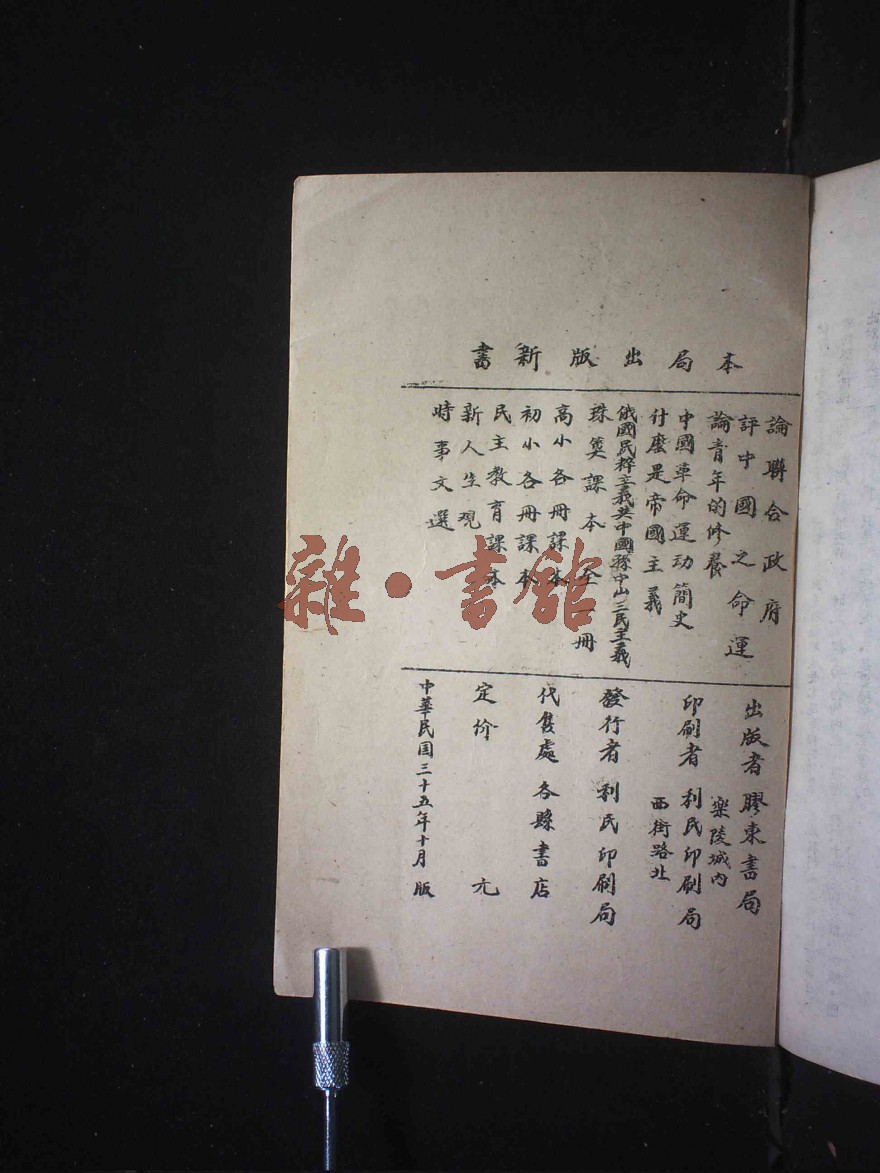 本局出版新書
論聯合政府
評中國之命運
論青年的修養
中國革命運动簡史
什麽是帝國主義
俄國民粹主義与中國孫中山三民主義
珠算課本全一冊
高小各册課本
初小各册課本
民主教育課本
新人生观
時事文選
出版者 膠東書局
樂陵城内
印刷者 利民印刷局
西街路北
發行者 利民印刷局
代售處 各縣書店
定价 元
中華民国三十五年十月 版
雜·書館